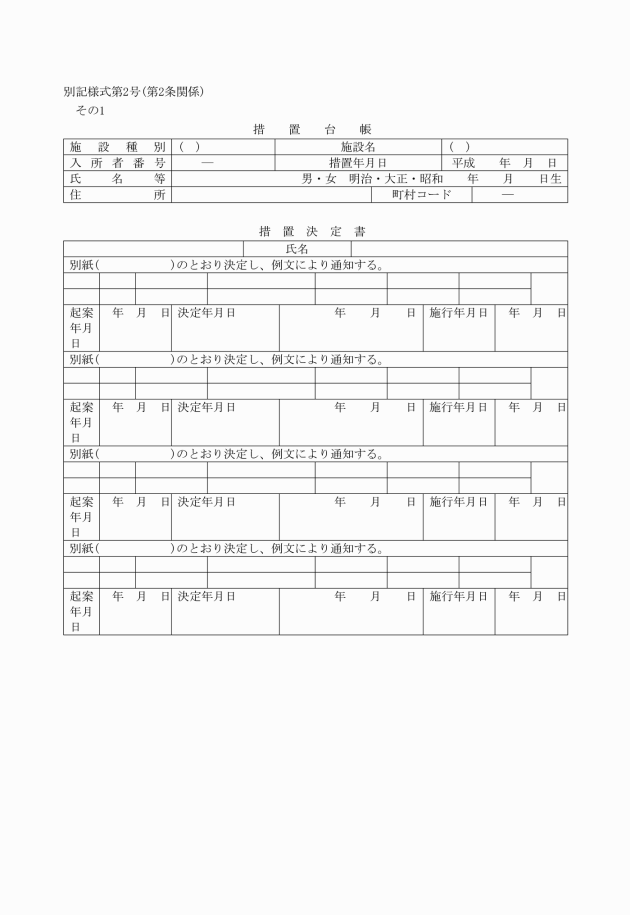 別記様式第2号(第2条関係)
その1
措置台帳
施設種別 ( ) 施設名 ( )
入所者番号 ― 措置年月日 平成 年 月 日
氏名等 男・女 明治・大正・昭和 年 月 日生
住所 町村コード ―
措置決定書
氏名
別紙( )のとおり決定し、例文により通知する。
起案 年 月 日 決定年月日 年 月 日 施行年月日 年 月 日
年月
日
別紙( )のとおり決定し、例文により通知する。
起案 年 月 日 決定年月日 年 月 日 施行年月日 年 月 日
年月
日
別紙( )のとおり決定し、例文により通知する。
起案 年 月 日 決定年月日 年 月 日 施行年月日 年 月 日
年月
日
別紙( )のとおり決定し、例文により通知する。
起案 年 月 日 決定年月日 年 月 日 施行年月日 年 月 日
年月
日